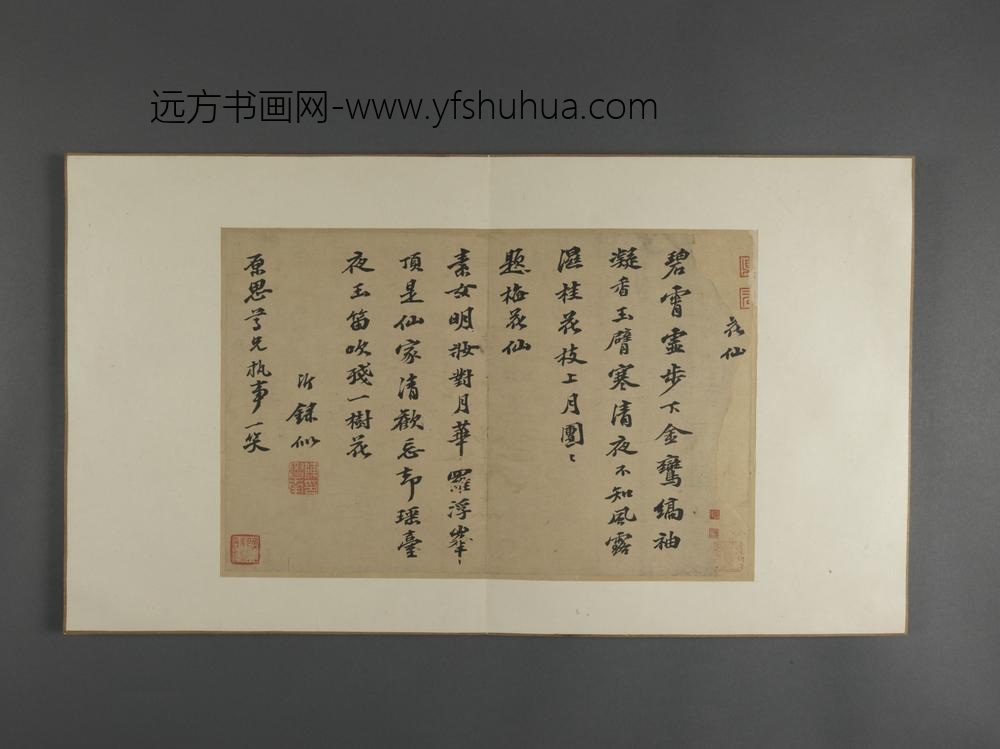 远方书画网-www.yfshuhua.com
花仙
碧霄虛步下金鸞縞袖
凝香玉臂寒清夜不知風露
濕桂花枝上月團〻
題梅花仙
素女明妝對月華羅浮
頂是仙家清歡忘却瑤臺
夜玉笛吹殘一樹花
錄似
原思尊兄執事一笑